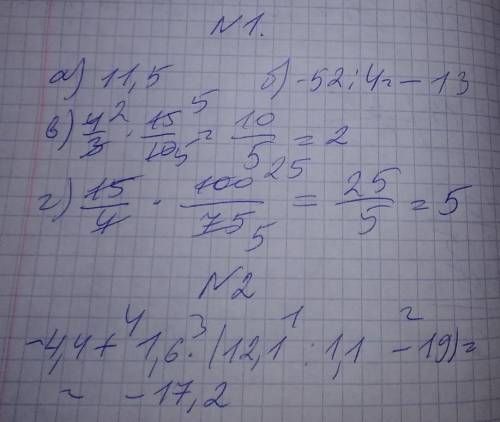 N1.
а) 11,5 б) -52 : 4 = -13
в) 4/3 2 · 15/10 5 5 = 10/5 = 2
г) 15/4 · 100/75 25 5 = 25/5 = 5
N2
-4,4 + 4 1,6 · 3 (12,1 1 : 1,1 2 - 19) =
= -17,2